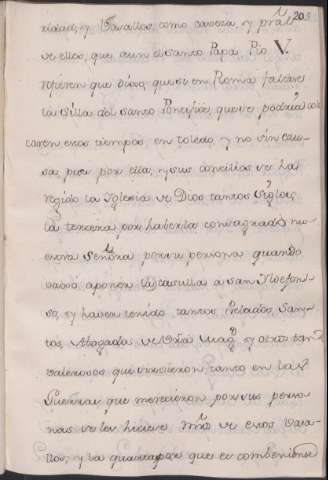 205
ridad, y Vasallos, como cavera, y pral
de ellos, que aun el santo Papa Pio V.
refieren que dixo: que si en Roma faltare
la silla del santo Pontifice, que se podria colo
car en esos tiempos en toledo, y no sin cau-
sa, pues por ella, y sus concilios se ha
regido la Iglesia de Dios tantos siglos;
la tercera por haverla consagrado nu
estra Señora por su persona quando
vaxó aponer la casulla a san Ildefon-
so, y haver tenido tantos Prelados, San-
tos, Abogada de Vra Magd y otros tan
valerosos que sirvieron tanto en las
Guerras, que merecieron por sus perso
nas se les hiciere Mrd de esos Vasa-
llos, y la quarta por que es combeniente